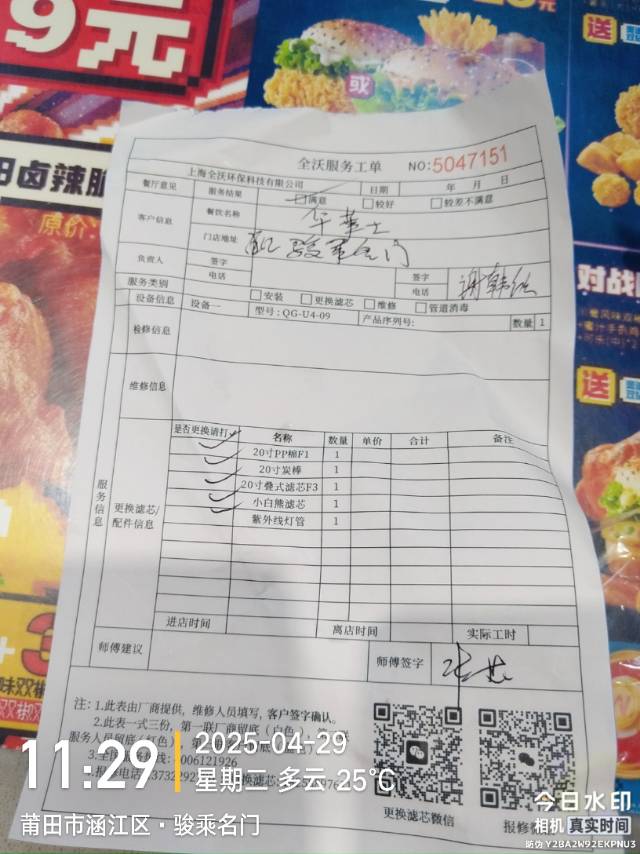 9元
或
送
卤辣脆
原价
对战
送
全沃服务工单 NO:5047151
上海全沃环保科技有限公司
餐厅意见 服务结果 满意 较好 较差不满意 日期 年 月 日
客户信息 餐饮名称 华莱士
门店地址 骏乘名门
负责人 签字 签字
电话 电话
服务类别 安装 更换滤芯 维修 管道消毒
设备信息 设备一 型号:QG-U4-09 产品序列号: 数量 1
检修信息
维修信息
服务信息
更换滤芯/配件信息
是否更换请打✓ 名称 数量 单价 合计 备注
✓ 20寸PP棉F1 1
✓ 20寸炭棒 1
✓ 20寸叠式滤芯F3 1
✓ 小白熊滤芯 1
✓ 紫外线灯管 1
进店时间 离店时间 实际工时
师傅建议 师傅签字
注:1.此表由厂商提供,维修人员填写,客户签字确认。
2.此表一式三份,第一联厂商留底(白色
服务人员留底(红色)
3.全国
006121926
4.报修电话
更换滤芯
更换滤芯微信
报修
11:29
2025-04-29
星期二 多云 25℃
莆田市涵江区·骏乘名门
今日水印
相机 真实时间
防伪 Y2BA2W92EKPNU3